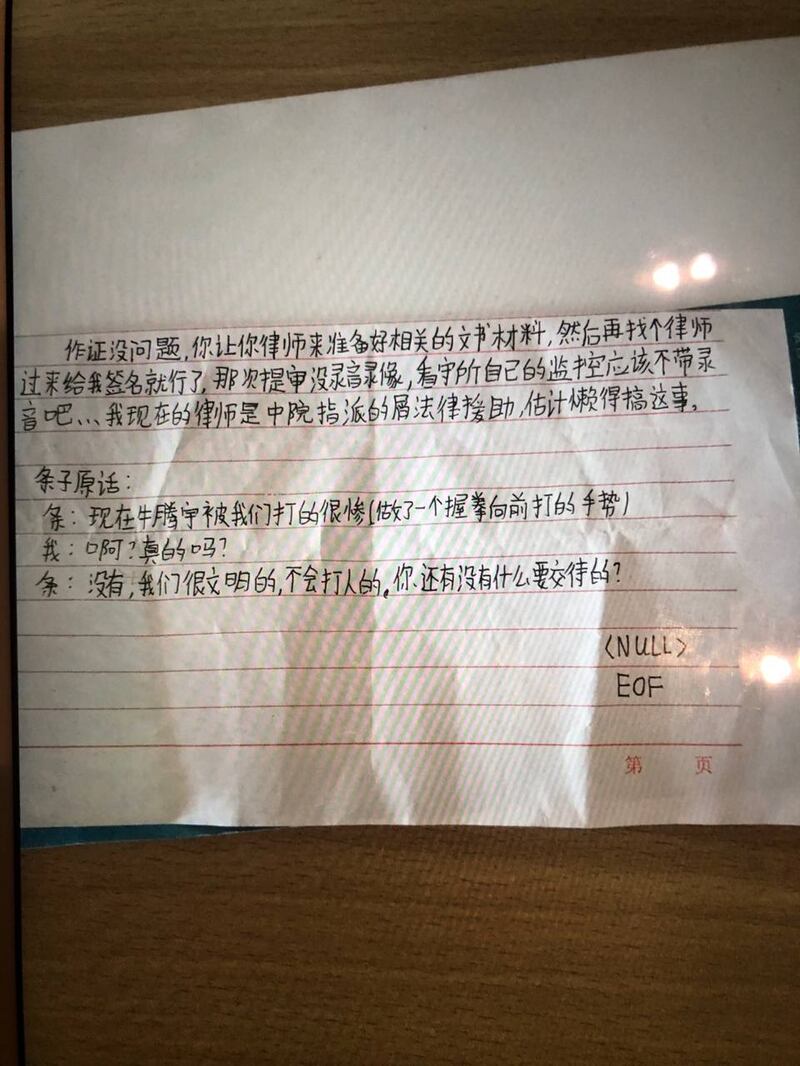 作证没问题,你让你律师来准备好相关的文书材料,然后再找个律师
过来给我签名就行了,那次提审没录音录像,看守所自己的监控应该不带录
音吧、、、我现在的律师是中院指派的属法律援助,估计懒得搞这事。
条子原话:
条:现在牛腾宇被我们打的很惨(做了一个握拳向前打的手势)
我:啊?真的吗?
条:没有,我们很文明的,不会打人的。你还有没有什么要交待的?
<NULL>
EOF
第 页